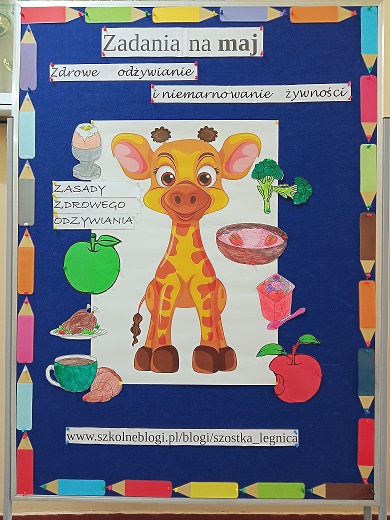 Zadania na maj
Zdrowe odżywianie
i niemarnowanie żywności
ZASADY
ZDROWEGO
ODŻYWIANIA
www.szkolneblogi.pl/blogi/szostka_legnica